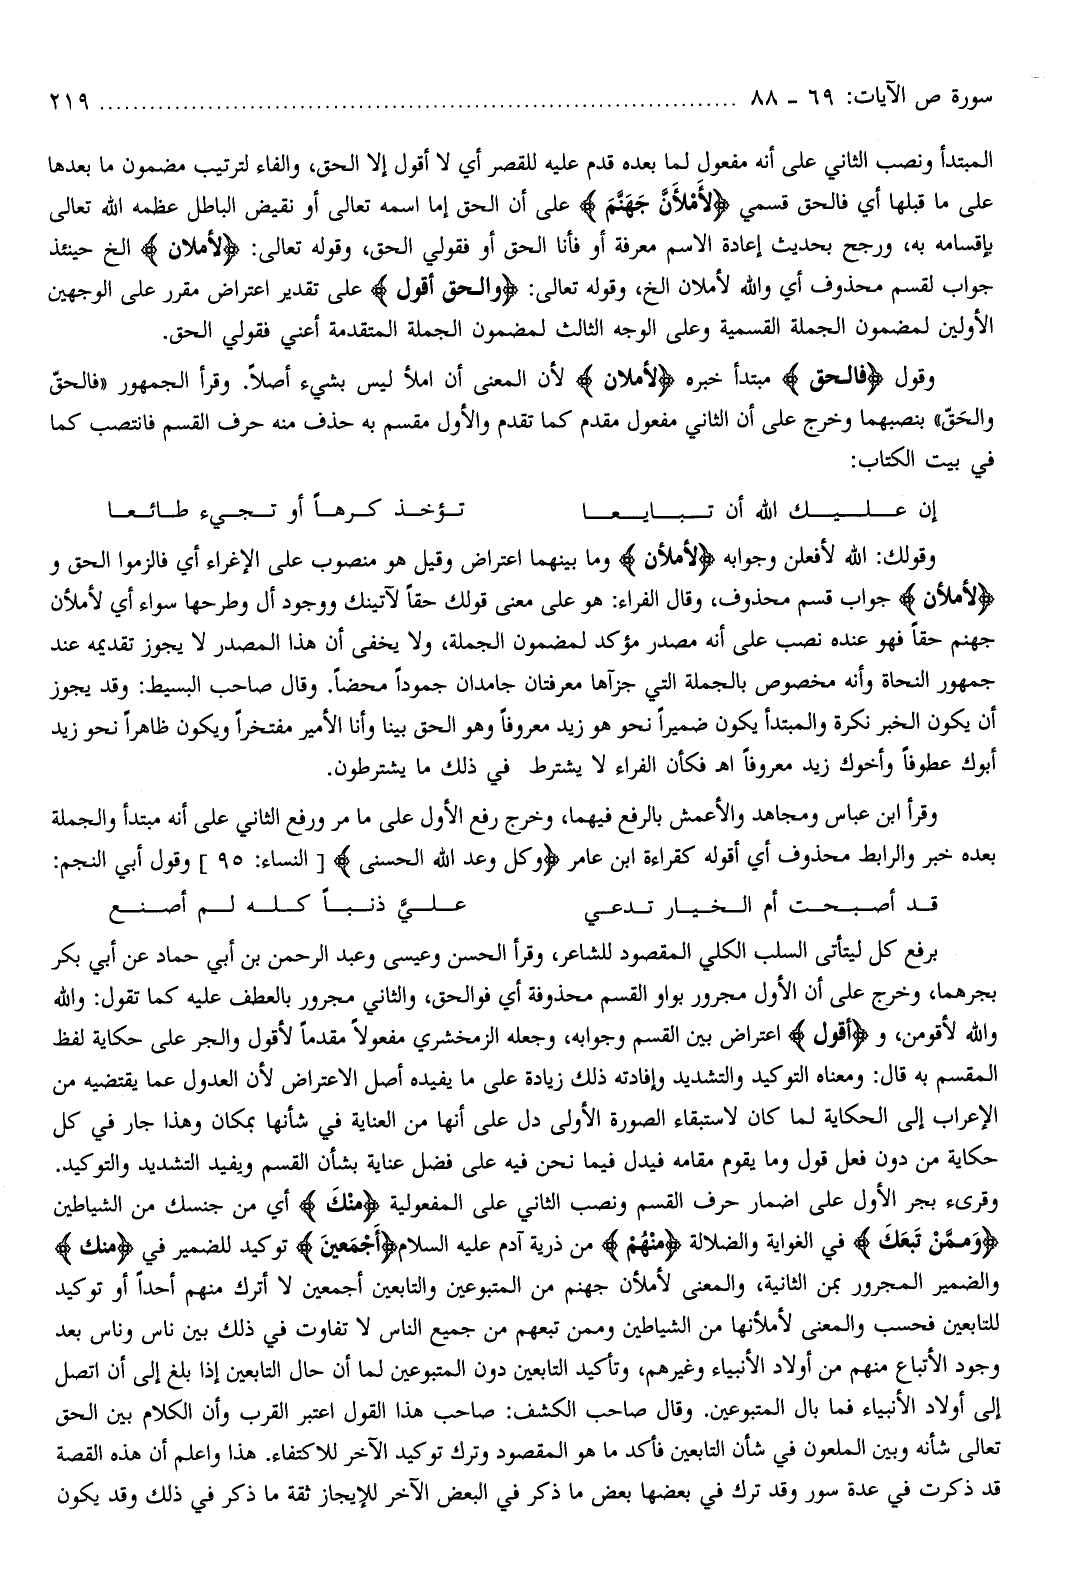 سورة ص الآيات: ٦٩ - ٨٨ ........................................................................ ٢١٩
المبتدأ ونصب الثاني على أنه مفعول لما بعده قدم عليه للقصر أي لا أقول إلا الحق، والفاء لترتيب مضمون ما بعدها
على ما قبلها أي فالحق قسمي ﴿لَأَمْلَأَنَّ جَهَنَّمَ﴾ على أن الحق إما اسمه تعالى أو نقيض الباطل عظمه الله تعالى
بإقسامه به، ورجح بحديث إعادة الاسم معرفة أو فأنا الحق أو فقولي الحق، وقوله تعالى: ﴿لأملان﴾ الخ حينئذ
جواب لقسم محذوف أي والله لأملان الخ، وقوله تعالى: ﴿والحق أقول﴾ على تقدير اعتراض مقرر على الوجهين
الأولين لمضمون الجملة القسمية وعلى الوجه الثالث لمضمون الجملة المتقدمة أعني فقولي الحق.
وقول ﴿فالحق﴾ مبتدأ خبره ﴿لأملان﴾ لأن المعنى أن املأ ليس بشيء أصلاً. وقرأ الجمهور «فالحقّ
والحَقّ» بنصبهما وخرج على أن الثاني مفعول مقدم كما تقدم والأول مقسم به حذف منه حرف القسم فانتصب كما
في بيت الكتاب:
إن عليك الله أن تبايعا تؤخذ كرهاً أو تجيء طائعا
وقولك: الله لأفعلن وجوابه ﴿لأملأن﴾ وما بينهما اعتراض وقيل هو منصوب على الإغراء أي فالزموا الحق و
﴿لأملأن﴾ جواب قسم محذوف، وقال الفراء: هو على معنى قولك حقاً لآتينك ووجود أل وطرحها سواء أي لأملأن
جهنم حقاً فهو عنده نصب على أنه مصدر مؤكد لمضمون الجملة، ولا يخفى أن هذا المصدر لا يجوز تقديمه عند
جمهور النحاة وأنه مخصوص بالجملة التي جزآها معرفتان جامدان جموداً محضاً. وقال صاحب البسيط: وقد يجوز
أن يكون الخبر نكرة والمبتدأ يكون ضميراً نحو هو زيد معروفاً وهو الحق بينا وأنا الأمير مفتخراً ويكون ظاهراً نحو زيد
أبوك عطوفاً وأخوك زيد معروفاً اهـ فكأن الفراء لا يشترط في ذلك ما يشترطون.
وقرأ ابن عباس ومجاهد والأعمش بالرفع فيهما، وخرج رفع الأول على ما مر ورفع الثاني على أنه مبتدأ والجملة
بعده خبر والرابط محذوف أي أقوله كقراءة ابن عامر ﴿وكل وعد الله الحسنى﴾ [النساء: ٩٥] وقول أبي النجم:
قد أصبحت أم الخيار تدعي عليَّ ذنباً كله لم أصنع
برفع كل ليتأتى السلب الكلي المقصود للشاعر، وقرأ الحسن وعيسى وعبد الرحمن بن أبي حماد عن أبي بكر
بجرهما، وخرج على أن الأول مجرور بواو القسم محذوفة أي فوالحق، والثاني مجرور بالعطف عليه كما تقول: والله
والله لأقومن، و ﴿أقول﴾ اعتراض بين القسم وجوابه، وجعله الزمخشري مفعولاً مقدماً لأقول والجر على حكاية لفظ
المقسم به قال: ومعناه التوكيد والتشديد وإفادته ذلك زيادة على ما يفيده أصل الاعتراض لأن العدول عما يقتضيه من
الإعراب إلى الحكاية لما كان لاستبقاء الصورة الأولى دل على أنها من العناية في شأنها بمكان وهذا جار في كل
حكاية من دون فعل قول وما يقوم مقامه فيدل فيما نحن فيه على فضل عناية بشأن القسم ويفيد التشديد والتوكيد.
وقرىء بجر الأول على اضمار حرف القسم ونصب الثاني على المفعولية ﴿مِنْكَ﴾ أي من جنسك من الشياطين
﴿وَمِمَّنْ تَبِعَكَ﴾ في الغواية والضلالة ﴿مِنْهُمْ﴾ من ذرية آدم عليه السلام﴿أَجْمَعِينَ﴾ توكيد للضمير في ﴿منك﴾
والضمير المجرور بمن الثانية، والمعنى لأملأن جهنم من المتبوعين والتابعين أجمعين لا أترك منهم أحداً أو توكيد
للتابعين فحسب والمعنى لأملأنها من الشياطين وممن تبعهم من جميع الناس لا تفاوت في ذلك بين ناس وناس بعد
وجود الأتباع منهم من أولاد الأنبياء وغيرهم، وتأكيد التابعين دون المتبوعين لما أن حال التابعين إذا بلغ إلى أن اتصل
إلى أولاد الأنبياء فما بال المتبوعين. وقال صاحب الكشف: صاحب هذا القول اعتبر القرب وأن الكلام بين الحق
تعالى شأنه وبين الملعون في شأن التابعين فأكد ما هو المقصود وترك توكيد الآخر للاكتفاء. هذا واعلم أن هذه القصة
قد ذكرت في عدة سور وقد ترك في بعضها بعض ما ذكر في البعض الآخر للإيجاز ثقة ما ذكر في ذلك وقد يكون